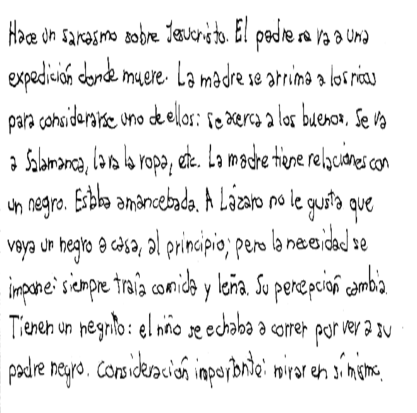 Hace un sarcasmo sobre Jesucristo. El padre se va a una
expedición donde muere. La madre se arrima a los ricos
para considerarse uno de ellos: se acerca a los buenos. Se va
a Salamanca, lava la ropa, etc. La madre tiene relaciones con
un negro. Estaba amancebada. A Lázaro no le gusta que
vaya un negro a casa, al principio; pero la necesidad se
impone: siempre traía comida y leña. Su percepción cambia.
Tienen un negrito: el niño se echaba a correr por ver a su
padre negro. Consideración importante: mirar en sí mismo.